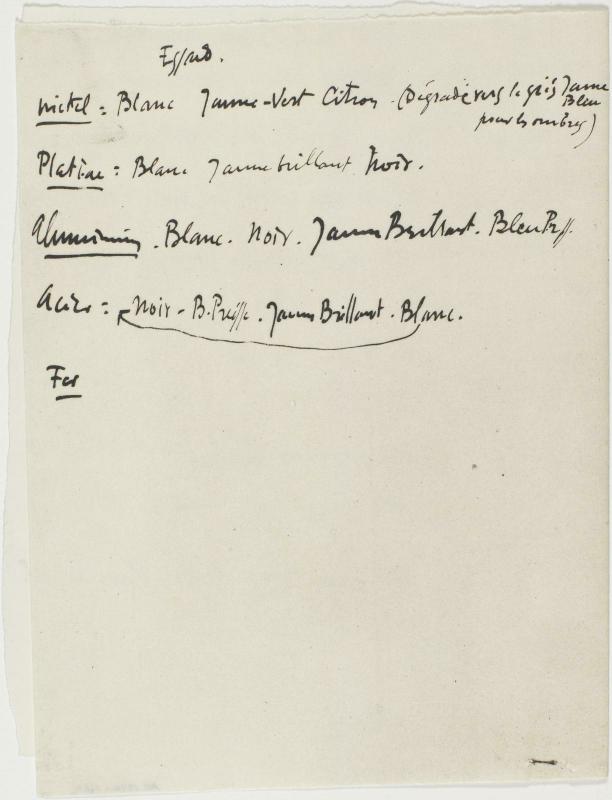 nickel = Blanc Jaune-Vert Citron. (Dégradé vers le gris Jaune
Bleu
pour les ombres)
Platine = Blanc Jaune brillant Noir.
Aluminium. Blanc. Noir. Jaune Brillant. Bleu Pss.
Acier = Noir - B. Prusse. Jaune Brillant. Blanc.
Fer